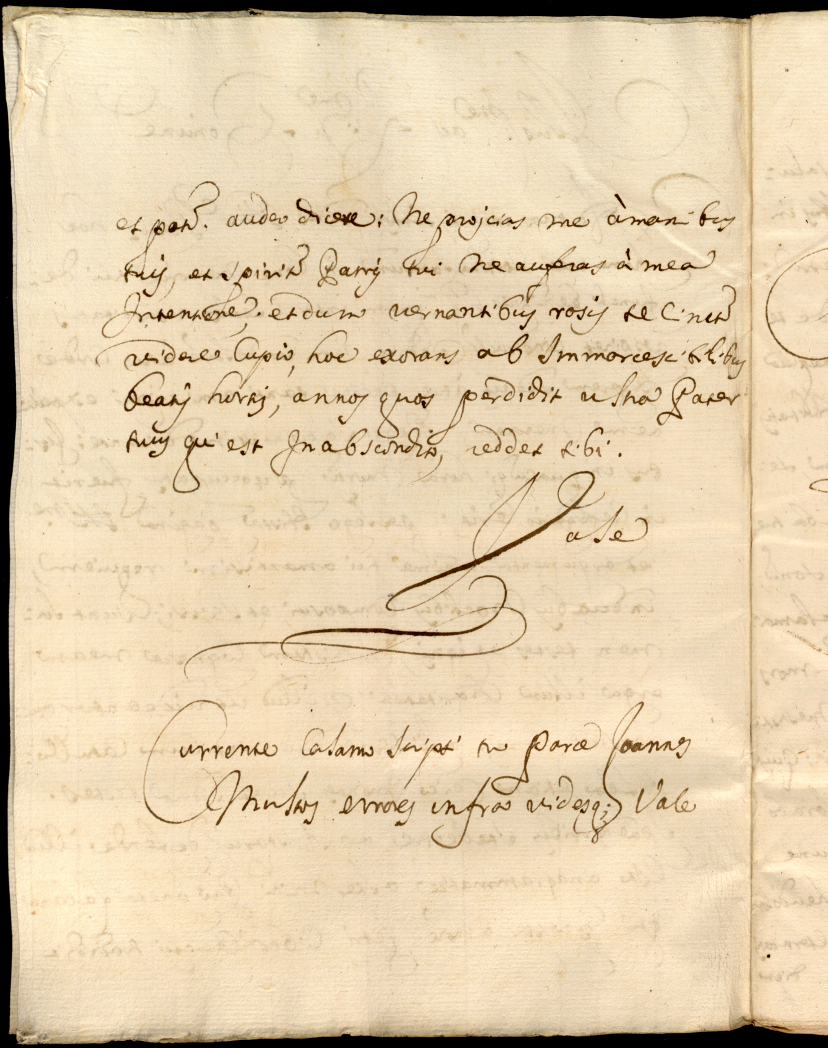 et pot̃. audeo dicere: Ne projcias me à manibus
tuis, et spirit̃ Patris tui Ne auferas à mea
Intentõne; et dum vernantibus rosis te Cinct̃
videre Cupio, hoc exorans ab Immarcescibilibus
beatis hortis, annos quos perdidit ulna Pater
tuus qui est In abscondito, reddet tibi.
Vale
Currente Calamo scripsi tu parce Joannes
Multos errores infra videsq; Vale